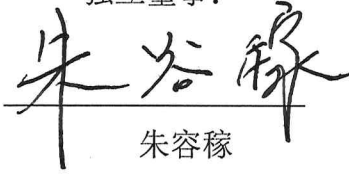 独立董事:
朱容稼
朱容稼